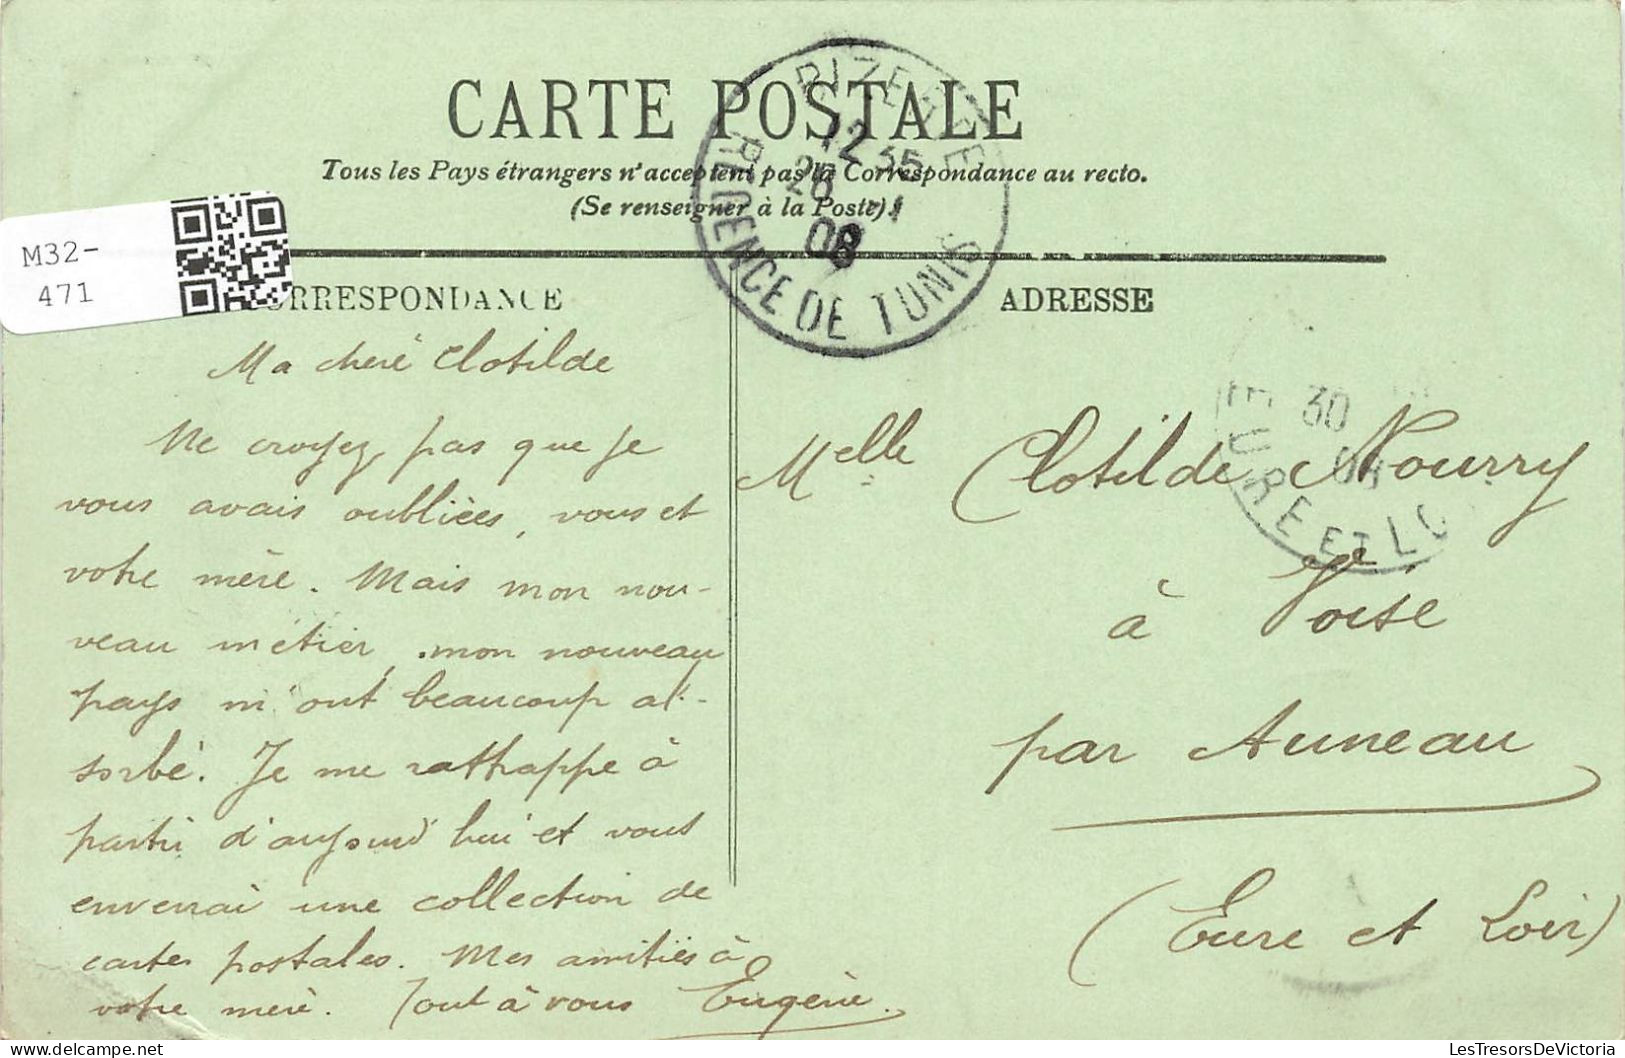 CARTE POSTALE
Tous les Pays étrangers n'acceptent pas la Correspondance au recto.
(Se renseigner à la Poste)
BIZERTE
12 35
26 -1
08
REGENCE DE TUNIS
M32-
471
CORRESPONDANCE
ADRESSE
Ma cherè Clotilde
Ne croyez pas que je
vous avais oubliées, vous et
votre mère. Mais mon nou-
veau métier, mon nouveau
pays m'ont beaucoup ab-
sorbé. Je me rattrappe à
partir d'aujourd'hui et vous
enverrai une collection de
cartes postales. Mes amitiés à
votre mère. Tout à vous Eugène.
Melle Clotilde Nourry
à Voise
par Auneau
(Eure et Loir)
30
08
EURE ET LO
LesTresorsDeVictoria